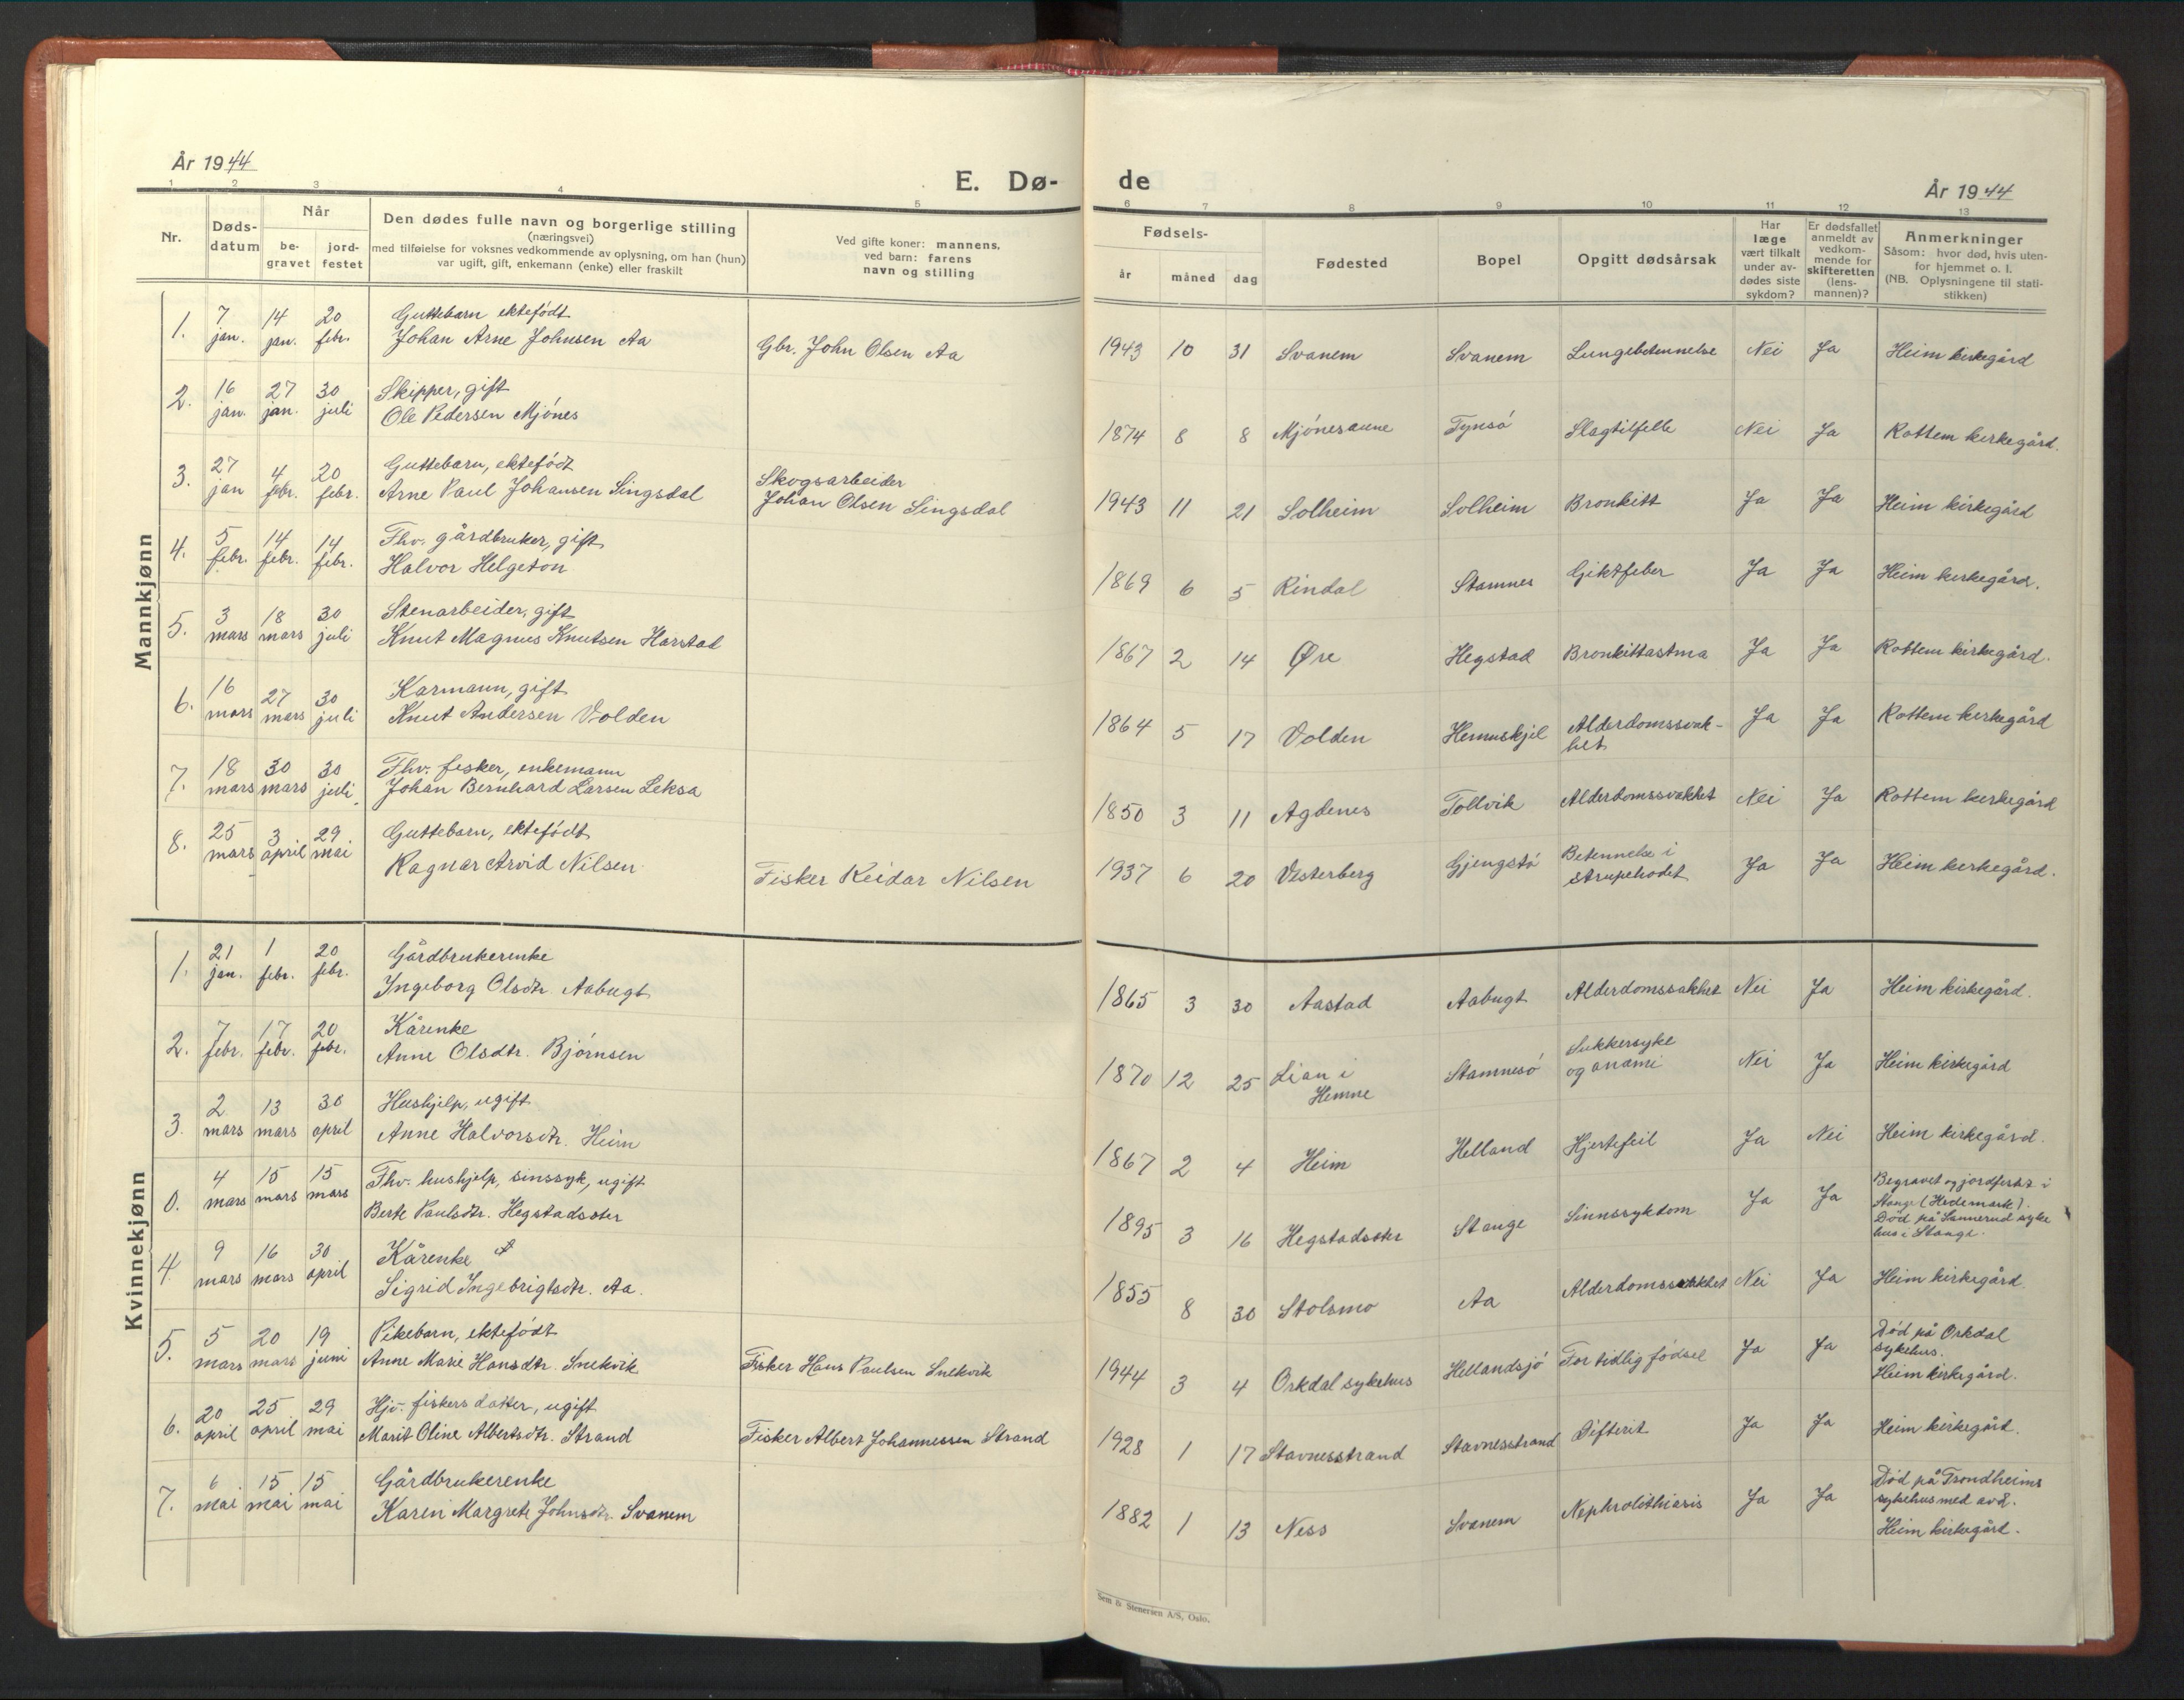 År 1944
E. Dø- de
År 1944
1 2 3 4 5 6 7 8 9 10 11 12 13
Nr.
Døds-
datum
Når
be-
gravet
jord-
festet
Den dødes fulle navn og borgerlige stilling
(næringsvei)
med tilføielse for voksnes vedkommende av oplysning, om han (hun)
var ugift, gift, enkemann (enke) eller fraskilt
Ved gifte koner: mannens,
ved barn: farens
navn og stilling
Fødsels-
år måned dag
Fødested
Bopel
Opgitt dødsårsak
Har
læge
vært tilkalt
under av-
dødes siste
sykdom?
Er dødsfallet
anmeldt av
vedkom-
mende for
skifteretten
(lens-
mannen)?
Anmerkninger
Såsom: hvor død, hvis uten-
for hjemmet o. l.
(NB. Oplysningene til stati-
stikken)
Mannkjønn
1. 7 jan. 14 jan. 20 febr. Guttebarn ektefødt
Johan Arne Johnsen Aa Gbr. John Olsen Aa 1943 10 31 Svanem Svanem Lungebetennelse Nei Ja Heim kirkegård
2. 16 jan. 27 jan. 30 juli Skipper, gift
Ole Pedersen Mjønes 1874 8 8 Mjønesaune Tynsø Slagtilfelle Nei Ja Rottem kirkegård.
3. 27 jan 4 febr. 20 febr. Guttebarn, ektefødt
Arne Paul Johansen Singsdal Skogsarbeider
Johan Olsen Singsdal 1943 11 21 Solheim Solheim Bronkitt Ja Ja Heim kirkegård
4. 5 febr. 14 febr. 14 febr. Fhv. gårdbruker, gift
Halvor Helgeton 1869 6 5 Rindal Stamnes Giktfeber Ja Ja Heim kirkegård.
5. 3 mars 18 mars 30 juli Stenarbeider, gift
Knut Magnus Knutsen Harstad 1867 2 14 Øre Hegstad Bronkittastma Ja Ja Rottem kirkegård.
6. 16 mars 27 mars 30 juli Karmann, gift
Knut Andersen Volden 1864 5 17 Volden Hemnskjel Alderdomssvak-
het Ja Ja Rottem kirkegård
7. 18 mars 30 mars 30 juli Fhv. fisker, enkemann
Johan Bernhard Larsen Leksa 1850 3 11 Agdenes Tollvik Alderdomssvakhet Nei Ja Rottem kirkegård
8. 25 mars 3 april 29 mai Guttebarn, ektefødt
Ragnar Arvid Nilsen Fisker Reidar Nilsen 1937 6 20 Vesterberg Gjengstø Betennelse i
strupehodet Ja Ja Heim kirkegård.
Kvinnekjønn
1. 21 jan. 1 febr. 20 febr. Gårdbrukerenke
Ingeborg Olsdtr. Aabugt 1865 3 30 Aastad Aabugt Alderdomssakhet Nei Ja Heim kirkegård.
2. 7 febr. 17 febr. 20 febr. Kårenke
Anne Olsdtr. Bjørnsen 1870 12 25 Lian i
Hemne Stamnesø Sukkersyke
og anami Nei Ja Heim kirkegård
3. 2 mars 13 mars 30 april Hushjelp, ugift
Anne Halvorsdtr. Heim 1867 2 4 Heim Helland Hjertefeil Ja Nei Heim kirkegård.
0. 4 mars 15 mars 15 mars Fhv. hushjelp, sinssyk, ugift
Berte Paulsdtr. Hegstadsster 1895 3 16 Hegstadsster Stange Sinnssykdom Ja Ja Begravet og jordfestet i
Stange (Hedemark).
Død på Sannerud syke
hus i Stange.
4. 9 mars 16 mars 30 april Kårenke
Sigrid Ingebrigtsdtr. Aa. 1855 8 30 Stolsmo Aa Alderdomssvakhet Nei Ja Heim kirkegård
5. 5 mars 20 mars 19 juni Pikebarn, ektefødt
Anne Marie Hansdtr. Snekvik Fisker Hans Paulsen Snekvik 1944 3 4 Orkdal sykehus Hellandsjø For tidlig fødsel Ja Ja Død på Orkdal
sykehus.
Heim kirkegård.
6. 20 april 25 april 29 mai Hjv. fiskers datter, ugift
Marit Oline Albertsdtr. Strand Fisker Albert Johannessen Strand 1928 1 17 Stavnesstrand Stavnesstrand Difterit Ja Ja Heim kirkegård.
7. 6 mai 15 mai 15 mai Gårdbrukerenke
Karen Margrete Johnsdtr. Svanem 1882 1 13 Ness Svanem Nephrolithiasis Ja Ja Død på Trondheims
sykehus med avd.
Heim kirkegård.
Sem & Stenersen A/S, Oslo.